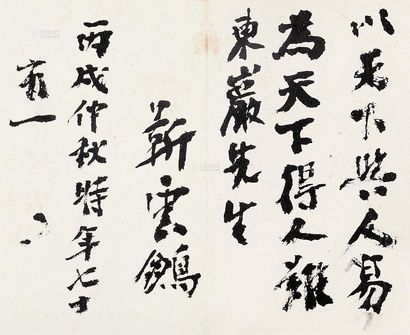 以天下與人易
為天下得人難
東巖先生
靳雲鵬
丙戌仲秋時年七十
有一